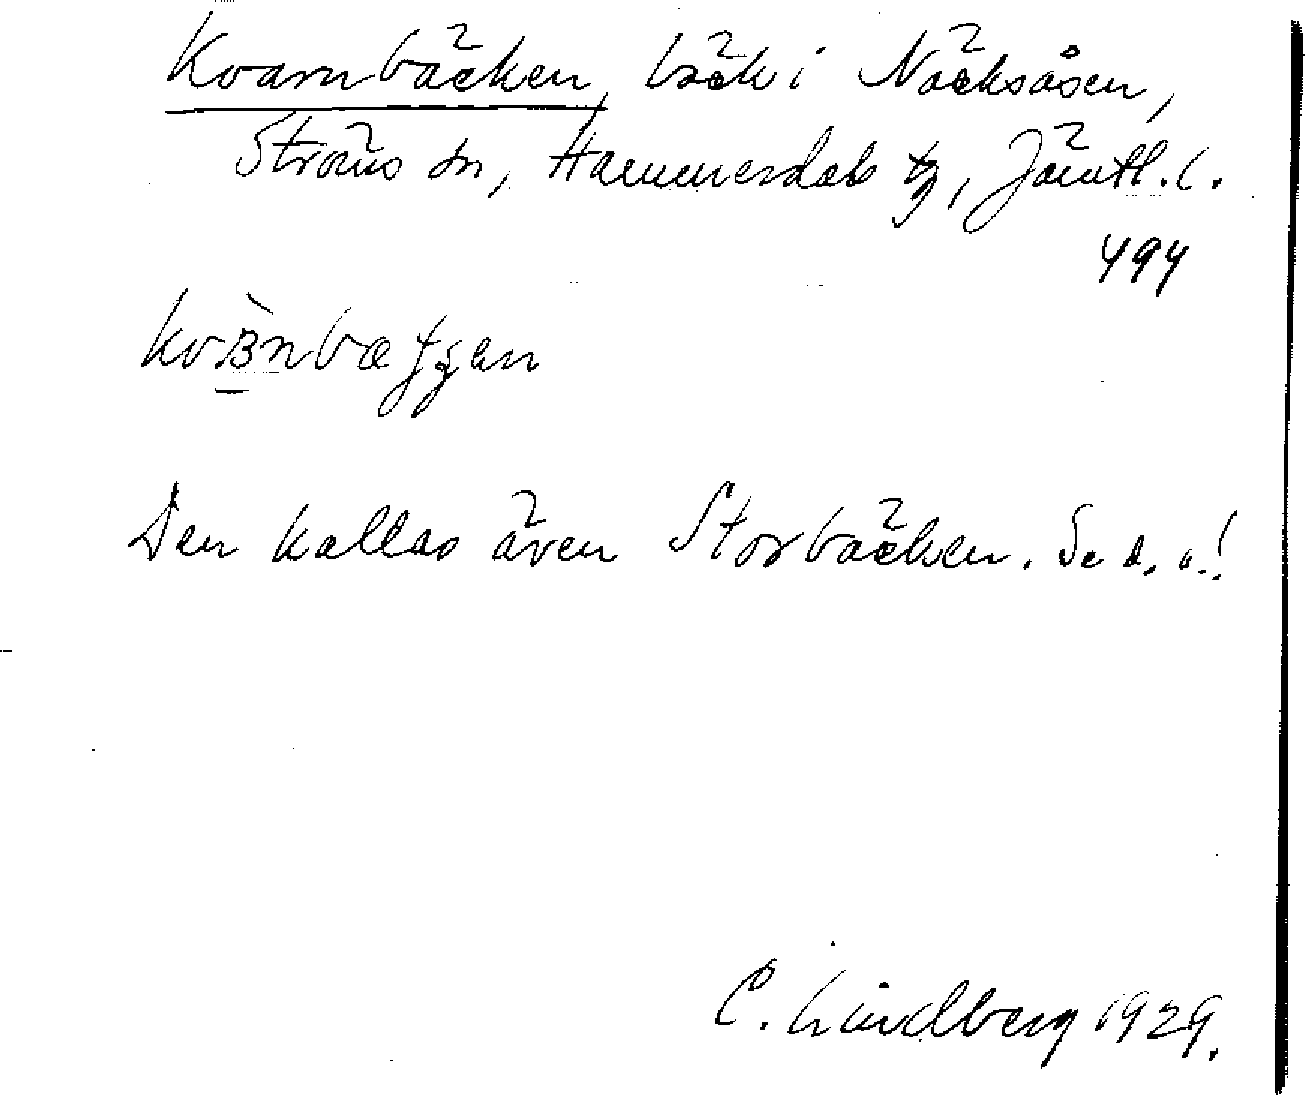 Kvarnbäcken, bäck i Näcksåsen,
Ströms sn, Hammerdals tg, Jämtl. l.
494
Den kallas även Storbäcken. Se d. o.!
C. Lindberg 1929.